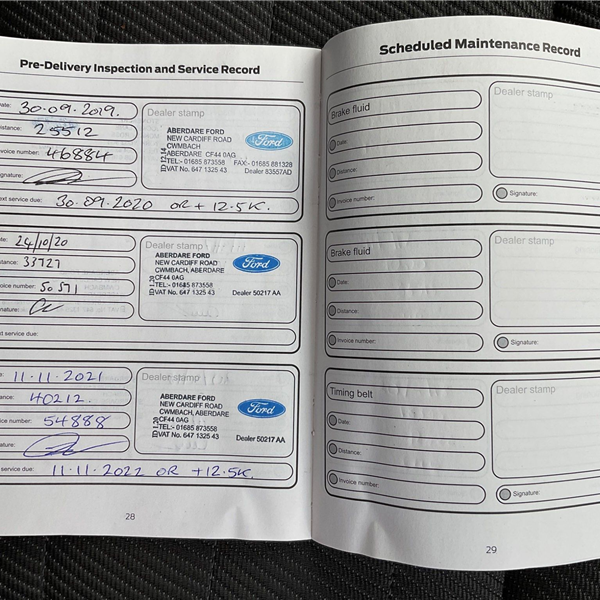 Pre-Delivery Inspection and Service Record
Date: 30-09-2019.
Distance: 25512
Invoice number: 46884
Signature:
Next service due: 30.09.2020 OR + 12.5K.
Dealer stamp
ABERDARE FORD
NEW CARDIFF ROAD
CWMBACH
ABERDARE CF44 0AG
TEL:- 01685 873558 FAX:- 01685 881328
VAT No. 647 1325 43 Dealer 83557AD
ID 12.14
Ford
Date: 24/10/20
Distance: 33727
Invoice number: 50571
Signature:
Next service due:
Dealer stamp
ABERDARE FORD
NEW CARDIFF ROAD
CWMBACH, ABERDARE
CF44 0AG
TEL:- 01685 873558
VAT No. 647 1325 43 Dealer 50217 AA
ID 1.20
Ford
11-11-2021
40212.
number: 54888
service due: 11.11.2022 OR +12.5K.
Dealer stamp
ABERDARE FORD
NEW CARDIFF ROAD
CWMBACH, ABERDARE
CF44 0AG
TEL:- 01685 873558
VAT No. 647 1325 43 Dealer 50217 AA
ID 1.20
Ford
28
Scheduled Maintenance Record
Brake fluid
Date:
Distance:
Invoice number:
Dealer stamp
Signature:
Brake fluid
Date:
Distance:
Invoice number:
Dealer stamp
Signature:
Timing belt
Date:
Distance:
Invoice number:
Dealer stamp
Signature:
29